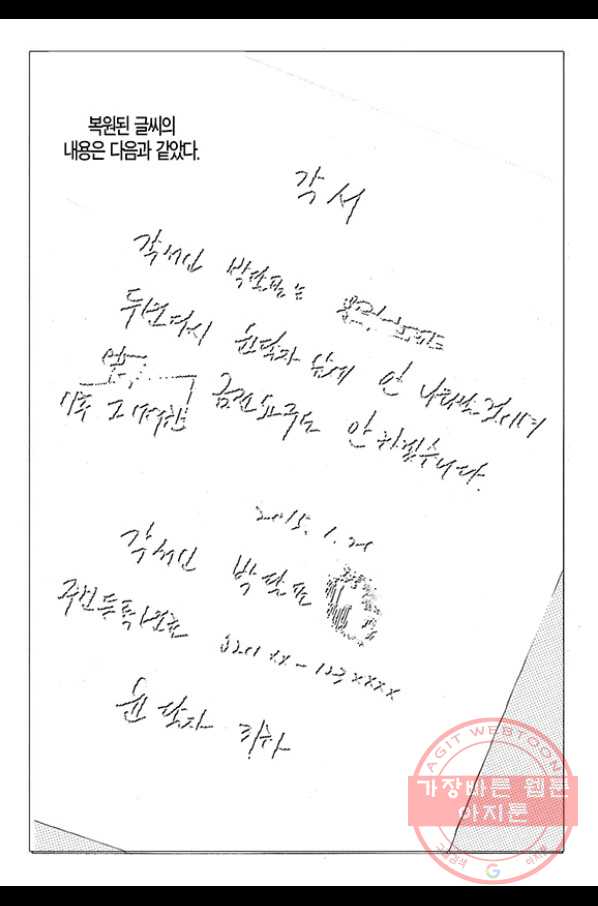 복원된 글씨의
내용은 다음과 같았다.
각서
각서인 박달포는
두번다시 윤달자 앞에 안 나타날 것이며
금전요구도 안 하겠습니다.
2015. 1. 20
각서인 박달포
주민등록번호
윤달자 귀하
AGIT WEBTOON
가장빠른 웹툰
아지툰
구글검색 G 아지툰